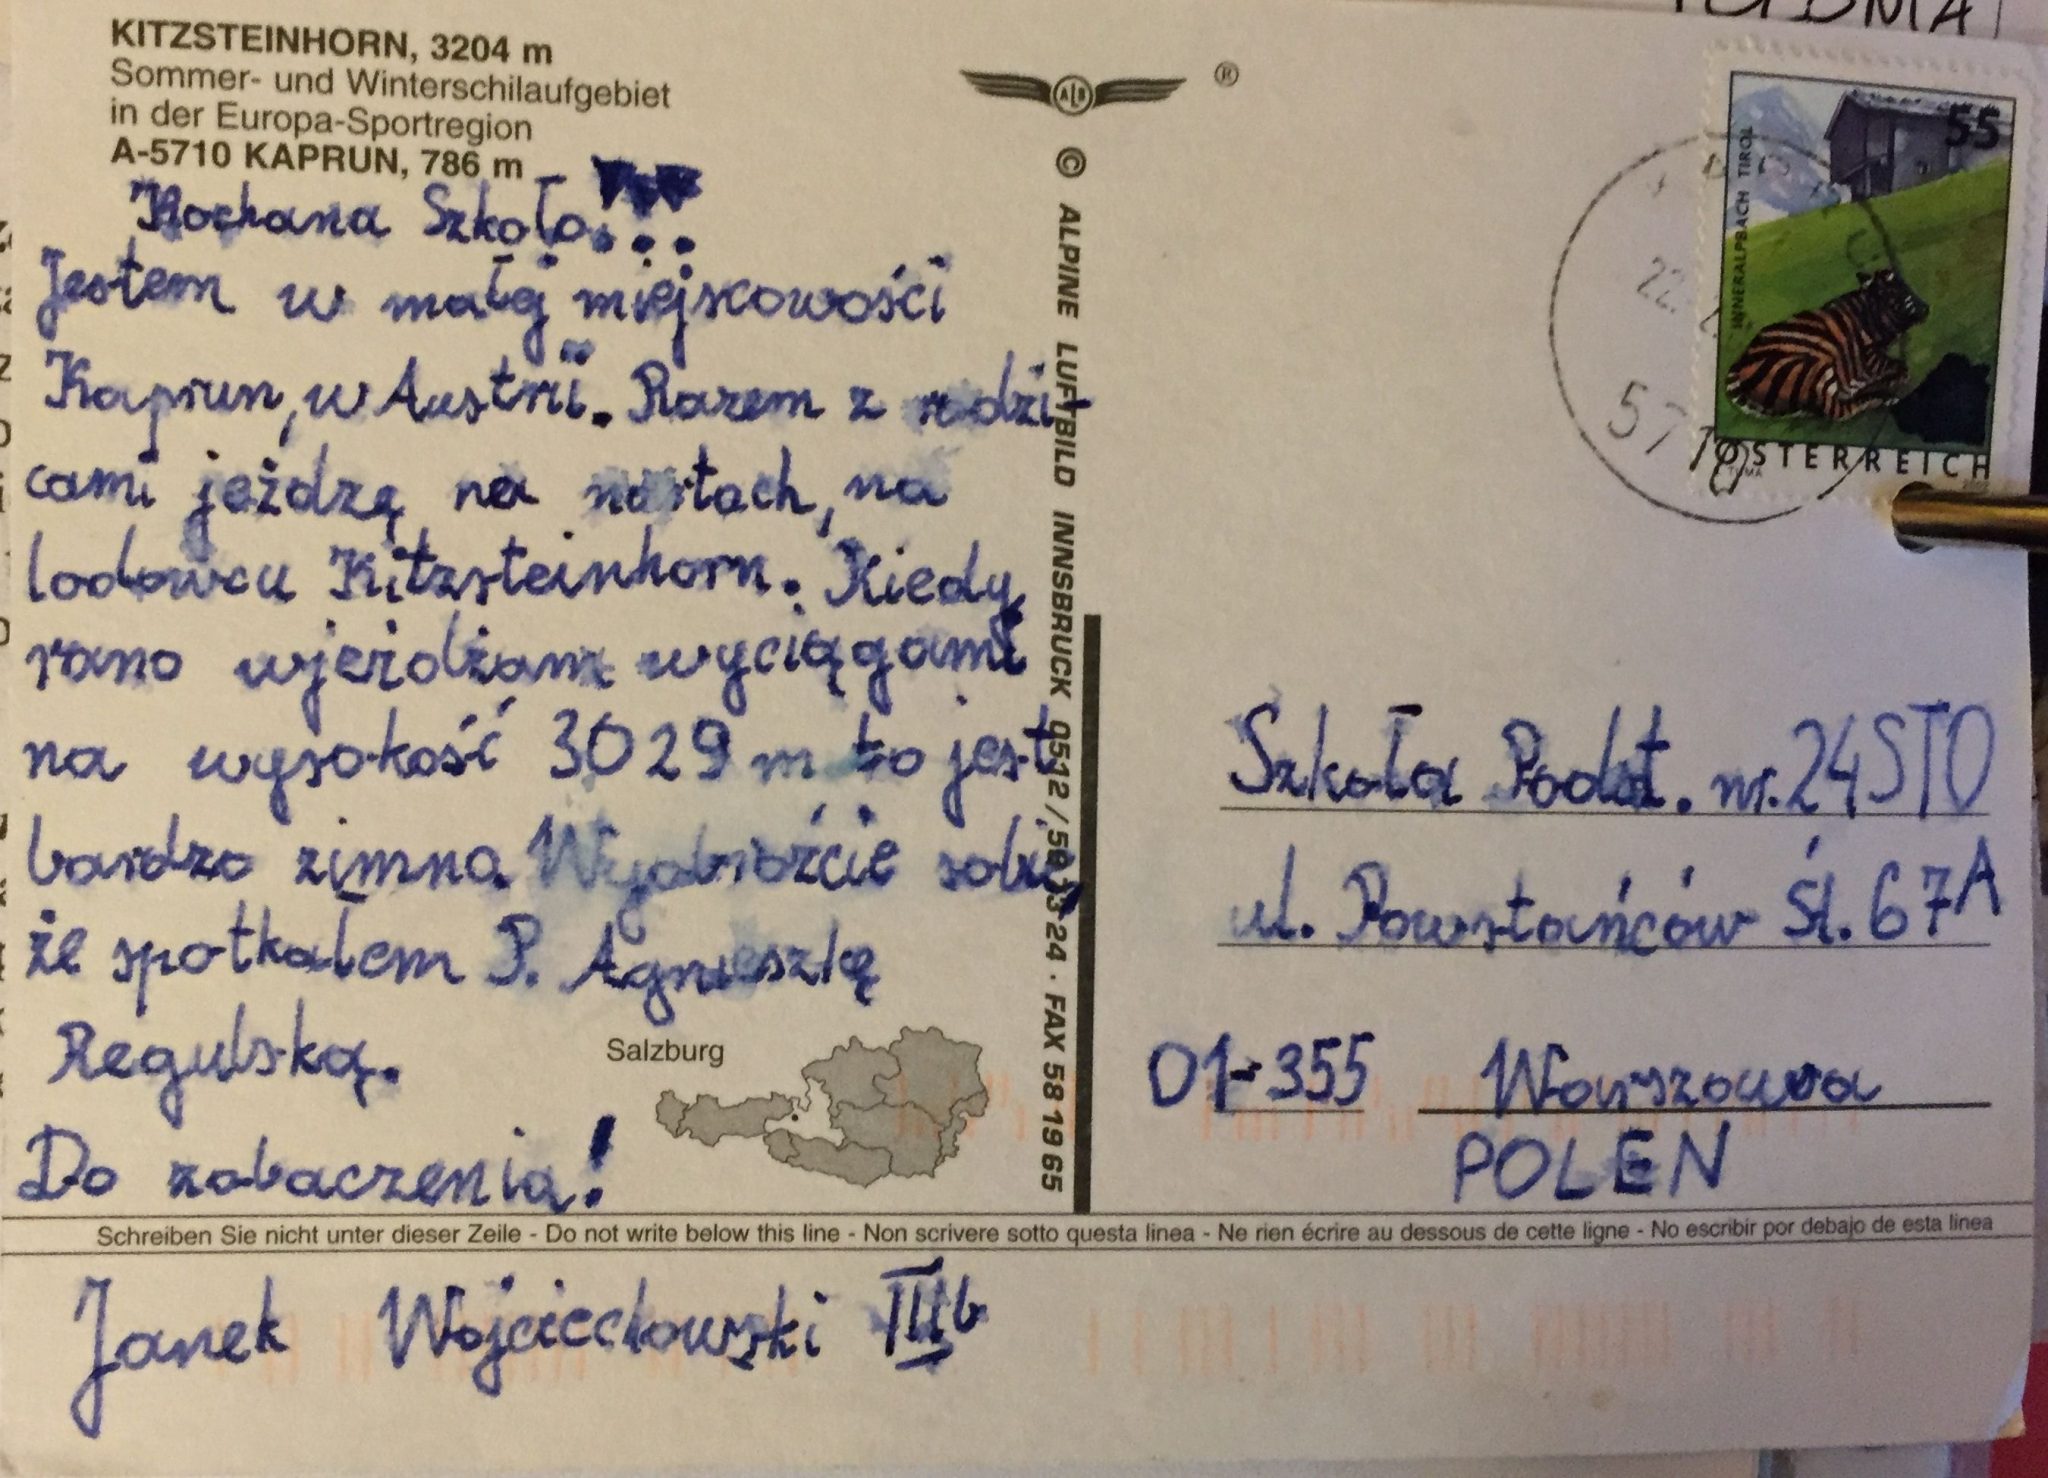 KITZSTEINHORN, 3204 m
Sommer- und Winterschilaufgebiet
in der Europa-Sportregion
A-5710 KAPRUN, 786 m
Kochana Szkoło!!!
Jestem w małej miejscowości
Kaprun, w Austrii. Razem z rodzi-
cami jeżdżę na nartach, na
lodowcu Kitzsteinhorn. Kiedy
rano wjeżdżam wyciągami
na wysokość 3029 m to jest
bardzo zimno. Wyobraźcie sobie,
że spotkałem P. Agnieszkę
Regulską.
Do zobaczenia!
Salzburg
ALB
®
© ALPINE LUFTBILD INNSBRUCK 0512/58 13 24 · FAX 58 19 65
INNERALPBACH TIROL
55
ÖSTERREICH
22.
5710
Szkoła Podst. nr. 24 STO
ul. Powstańców Śl. 67A
01-355 Warszawa
POLEN
Schreiben Sie nicht unter dieser Zeile - Do not write below this line - Non scrivere sotto questa linea - Ne rien écrire au dessous de cette ligne - No escribir por debajo de esta linea
Janek Wojciechowski IIIb